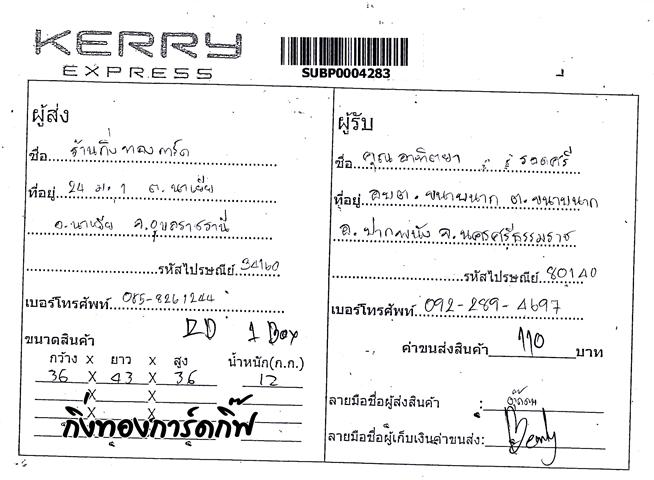 KERRY
EXPRESS
SUBP0004283
ผู้ส่ง
ชื่อ ร้านกิ่งทองการ์ด
ที่อยู่ 24 ม.1 ต.นาเยีย
อ.นาเยีย จ.อุบลราชธานี
รหัสไปรษณีย์ 34160
เบอร์โทรศัพท์ 085-8261244
RD 1 Box
ขนาดสินค้า
กว้าง x ยาว x สูง น้ำหนัก(ก.ก.)
36 X 43 X 36 12
X X
X X
กิ่งทองการ์ดกิ๊ฟ
ผู้รับ
ชื่อ คุณ อาทิตยา รอดศรี
ที่อยู่ อบต. ขนาบนาก ต.ขนาบนาก
อ. ปากพนัง จ.นครศรีธรรมราช
รหัสไปรษณีย์ 80140
เบอร์โทรศัพท์ 092-289-4697
ค่าขนส่งสินค้า 110 บาท
ลายมือชื่อผู้ส่งสินค้า :
ลายมือชื่อผู้เก็บเงินค่าขนส่ง: